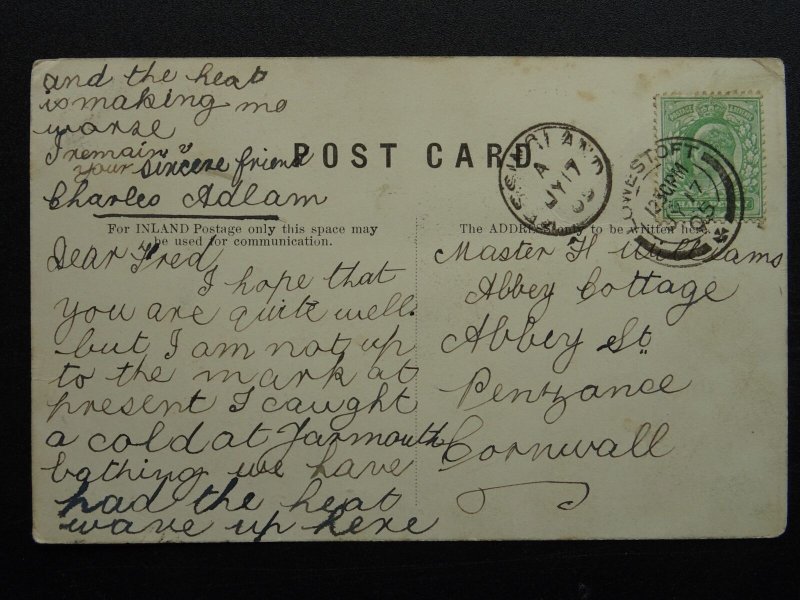 and the heat
is making me
warse
I remain
your sincere friend
Charles Adlam
POST CARD
For INLAND Postage only this space may
be used for communication.
The ADDRESS only to be written here.
KESSINGLAND
A
JY 17
05
LOWESTOFT
12.30PM
JY 17
05
Dear Fred,
I hope that
you are quite well.
but I am not up
to the mark at
present I caught
a cold at Yarmouth
bathing we have
had the heat
wave up here
Master H Williams
Abbey Cottage
Abbey St
Penzance
Cornwall